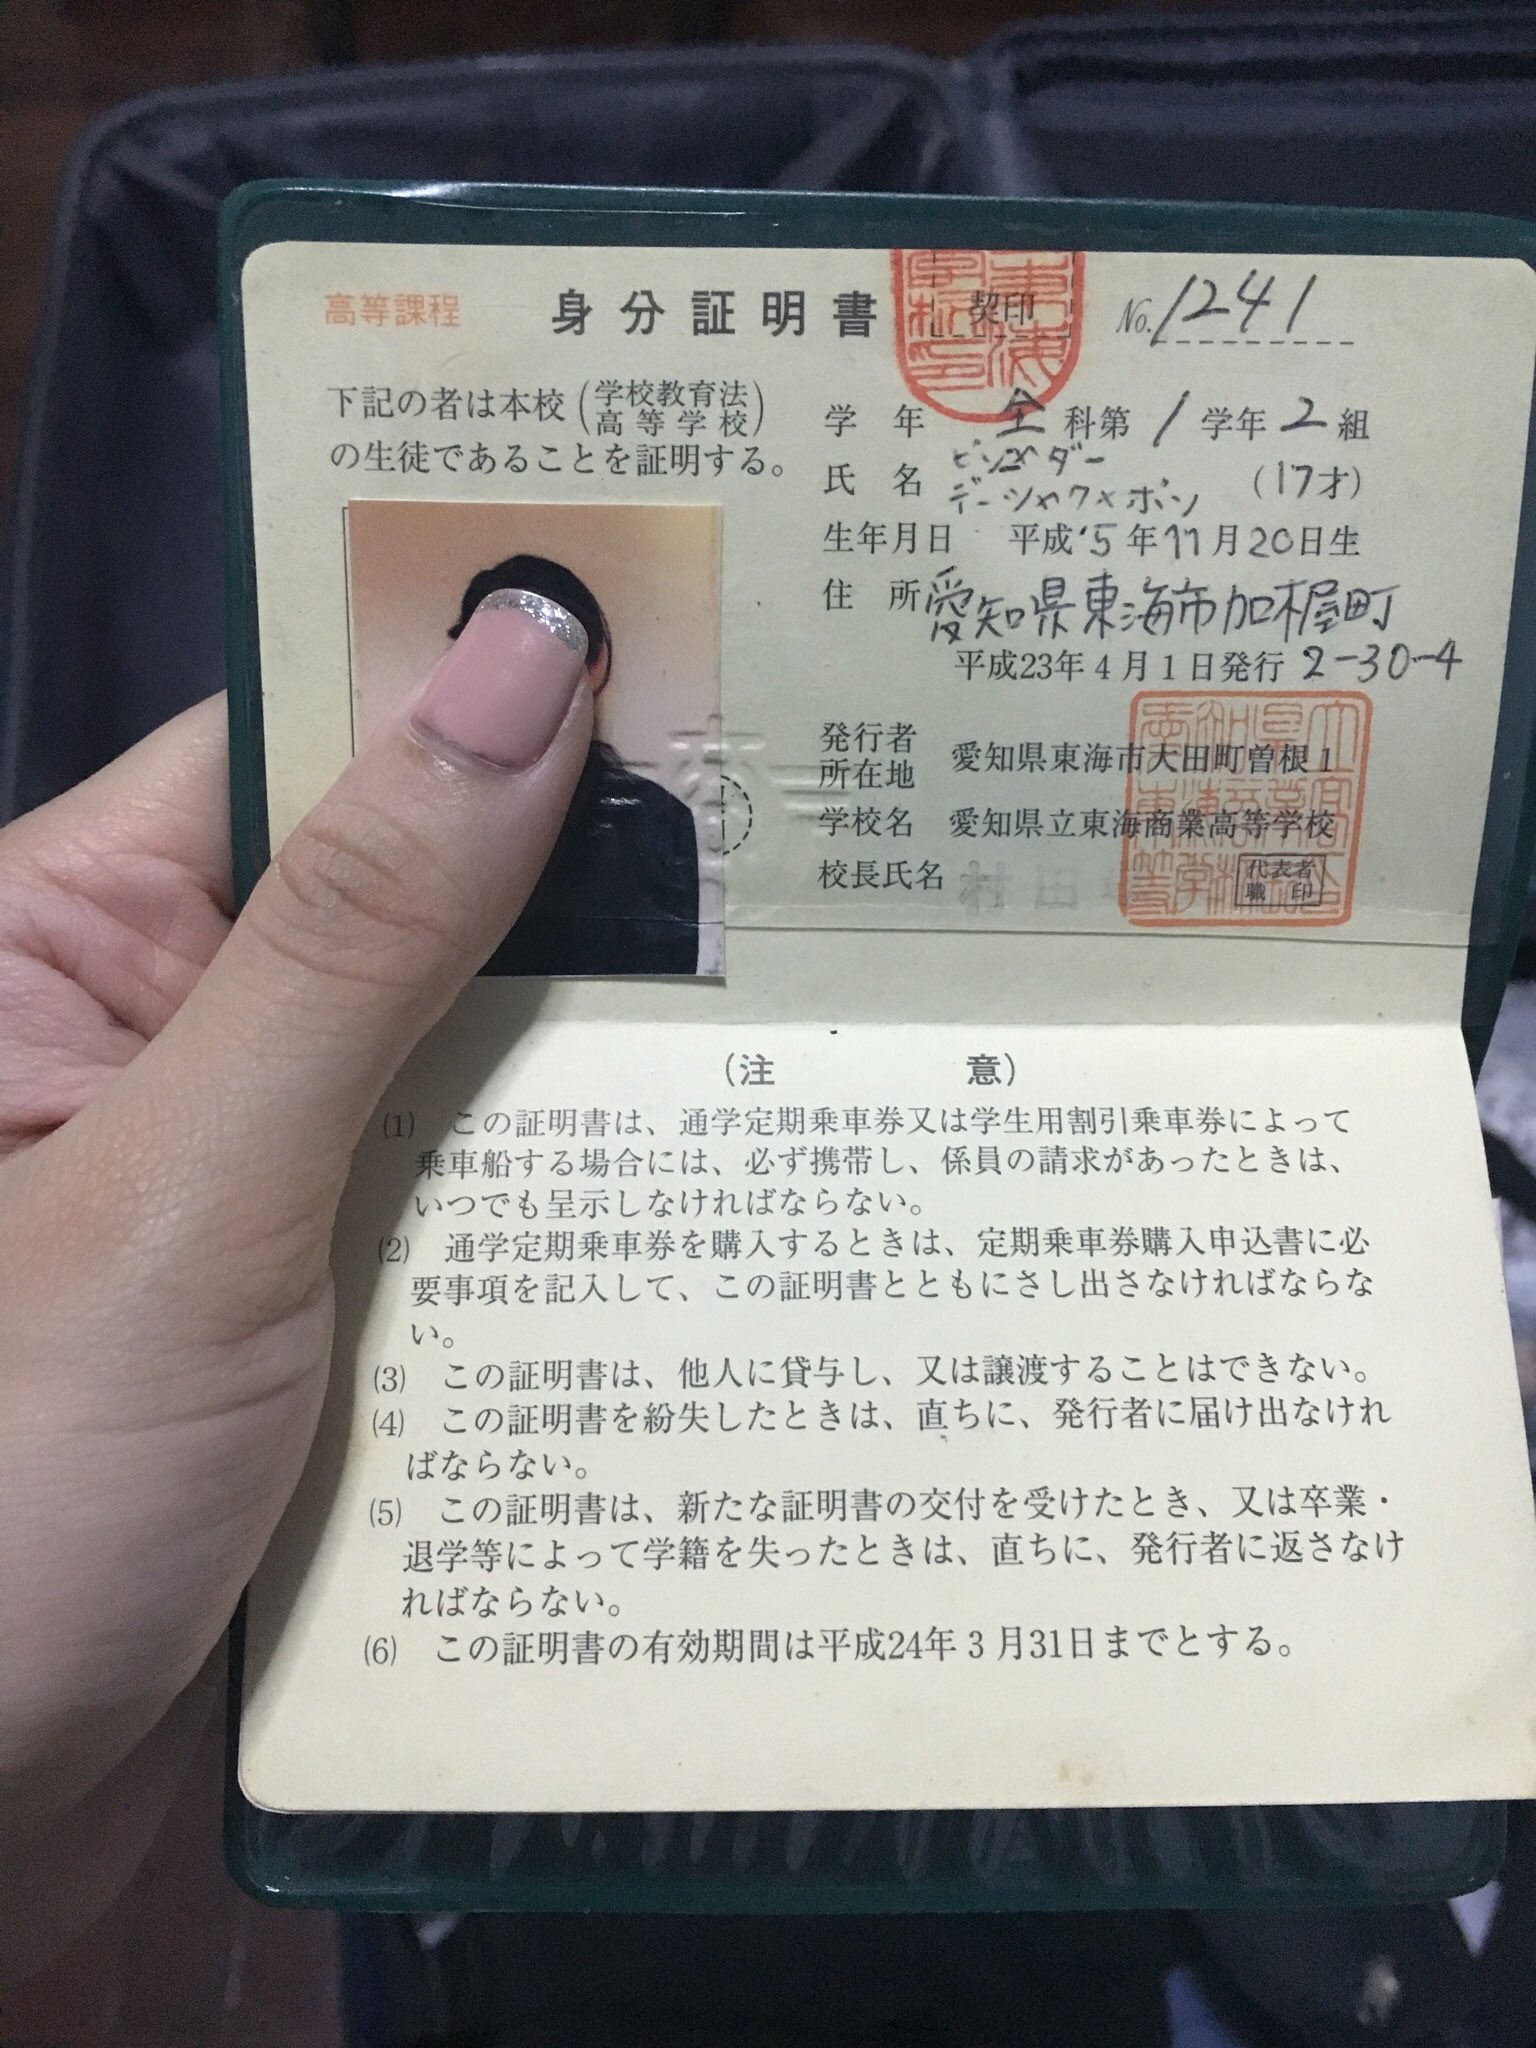 高等課程 身分証明書 契印 No. 1241
下記の者は本校(学校教育法 高等学校)
の生徒であることを証明する。
学年 全科第1学年2組
氏名 (17才)
生年月日 平成5年11月20日生
住所 愛知県東海市加木屋町
平成23年4月1日発行 2-30-4
発行者
所在地 愛知県東海市大田町曽根1
学校名 愛知県立東海商業高等学校
校長氏名 村田
代表者
職印
(注意)
(1) この証明書は、通学定期乗車券又は学生用割引乗車券によって
乗車船する場合には、必ず携帯し、係員の請求があったときは、
いつでも呈示しなければならない。
(2) 通学定期乗車券を購入するときは、定期乗車券購入申込書に必
要事項を記入して、この証明書とともにさし出さなければならな
い。
(3) この証明書は、他人に貸与し、又は譲渡することはできない。
(4) この証明書を紛失したときは、直ちに、発行者に届け出なけれ
ばならない。
(5) この証明書は、新たな証明書の交付を受けたとき、又は卒業・
退学等によって学籍を失ったときは、直ちに、発行者に返さなけ
ればならない。
(6) この証明書の有効期間は平成24年3月31日までとする。